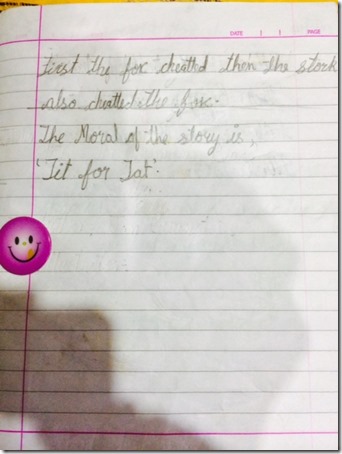 DATE | | PAGE
First the fox cheathd then the stork
also cheatted the fox.
The Moral of the story is,
'Tit for Tat'.